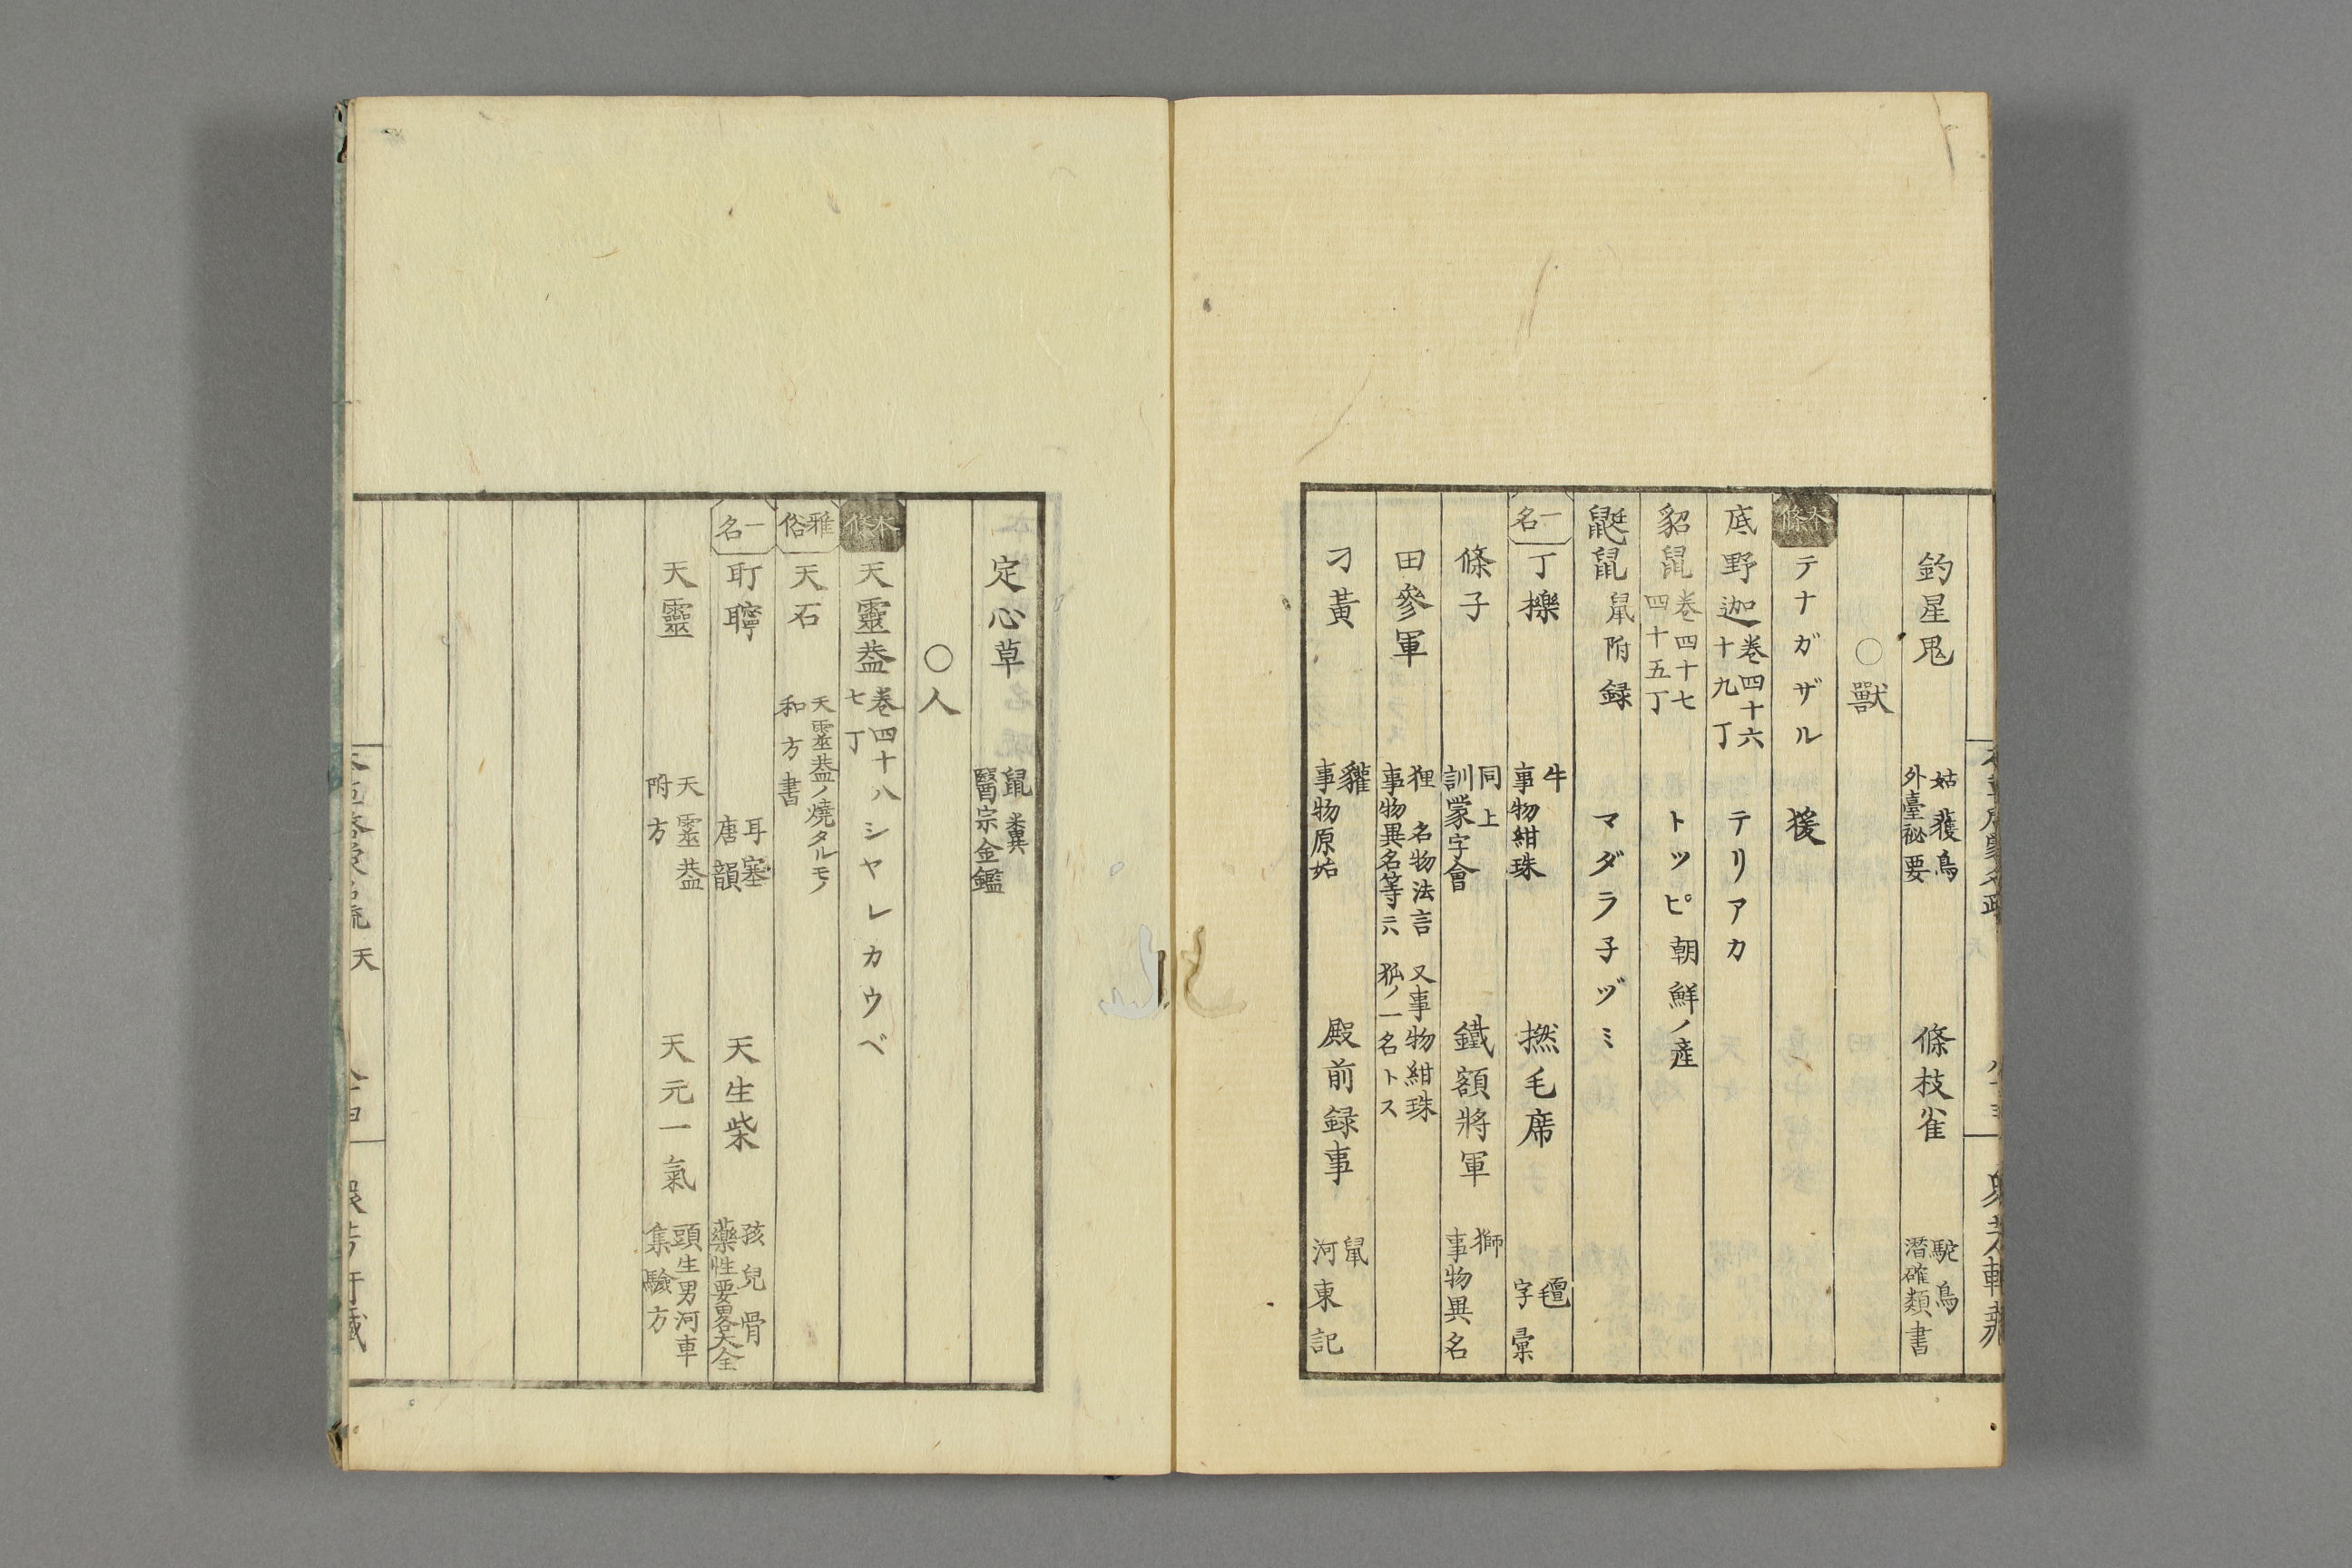 釣星鬼 姑獲鳥 外臺祕要 條枝雀 駝鳥 潛確類書
○獸
本條 テナガザル 猨
底野迦 巻四十六 十九丁 テリアカ
貂鼠 巻四十七 四十五丁 トツピ 朝鮮ノ産
鼮鼠 鼠附録 マダラ子ヅミ
一名 丁櫟 牛 事物紺珠 撚毛席 氊 字彙
條子 同上 訓蒙字會 鐵額將軍 獅 事物異名
田參軍 狸 名物法言 又事物紺珠 事物異名等ニハ 狐ノ一名トス
刁黃 貛 事物原始 殿前録事 鼠 河東記
定心草 鼠糞 醫宗金鑑
○人
本條 天靈葢 巻四十八 七丁 シヤレカウベ
雅俗 天石 天靈葢ノ燒タルモノ 和方書
一名 耵聹 耳塞 唐韻 天生柴 孩兒骨 藥性要畧大全
天靈 天靈葢 附方 天元一氣 頭生男河車 集驗方
天